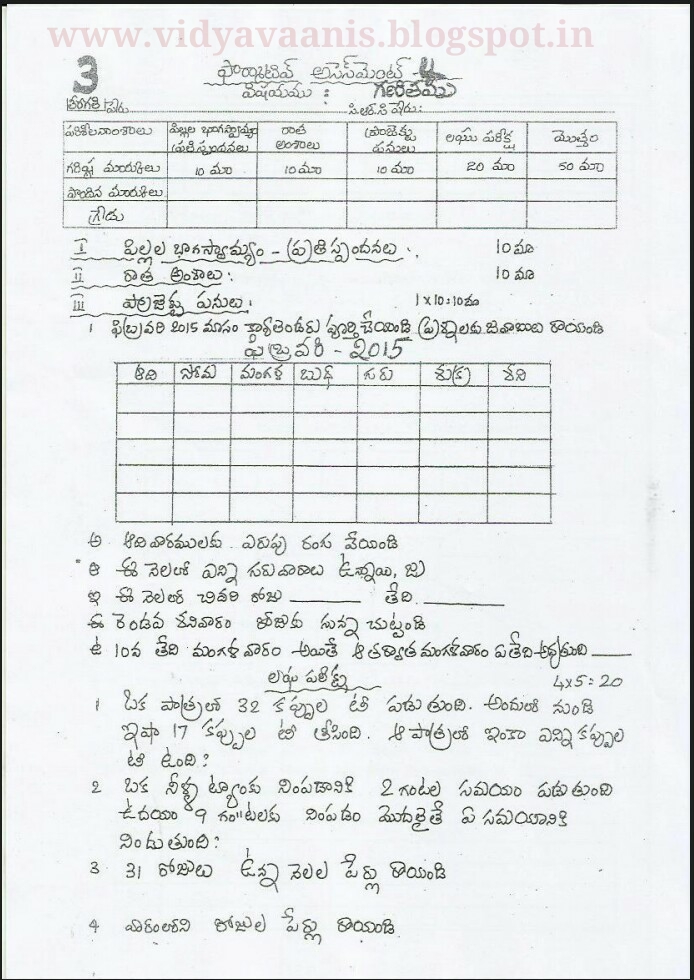 www.vidyavaanis.blogspot.in
3 ఫార్మాటివ్ అసెస్‌మెంట్ - 4
విషయము : గణితము
పేరు సి.ఆర్.సి పేరు:
పరిశీలనాంశాలు పిల్లల భాగస్వామ్యం ప్రతిస్పందనలు రాత అంశాలు ప్రాజెక్టు పనులు లఘు పరీక్ష మొత్తం
గరిష్ట మార్కులు 10 మా 10 మా 10 మా 20 మా 50 మా
పొందిన మార్కులు
గ్రేడు
I పిల్లల భాగస్వామ్యం - ప్రతిస్పందనలు : 10 మా
II రాత అంశాలు : 10 మా
III ప్రాజెక్టు పనులు : 1 x 10 = 10 మా
1 ఫిబ్రవరి 2015 మాసం క్యాలెండరు పూర్తి చేయండి ప్రశ్నలకు జవాబులు రాయండి
ఫిబ్రవరి - 2015
ఆది సోమ మంగళ బుధ గురు శుక్ర శని
అ ఆదివారములకు ఎరుపు రంగు వేయండి
ఆ ఈ నెలలో ఎన్ని గురువారాలు ఉన్నాయి, జ
ఇ ఈ నెలలో చివరి రోజు ______ తేది. ______
ఈ రెండవ శనివారం రోజుకు సున్న చుట్టండి
ఉ 10వ తేది మంగళవారం అయితే ఆ తర్వాత మంగళవారం ఏ తేది అవుతుంది ____
లఘు పరీక్ష 4x5 = 20
1 ఒక పాత్రలో 32 కప్పుల టీ పడుతుంది. అందులో నుండి
ఇషా 17 కప్పుల టీ తీసింది. ఆ పాత్రలో ఇంకా ఎన్ని కప్పుల
టీ ఉంది?
2 ఒక నీళ్ళ ట్యాంకు నింపడానికి 2 గంటల సమయం పడుతుంది
ఉదయం 9 గం॥టలకు నింపడం మొదలైతే ఏ సమయానికి
నిండుతుంది?
3 31 రోజులు ఉన్న నెలల పేర్లు రాయండి
4 వారంలోని రోజుల పేర్లు రాయండి.